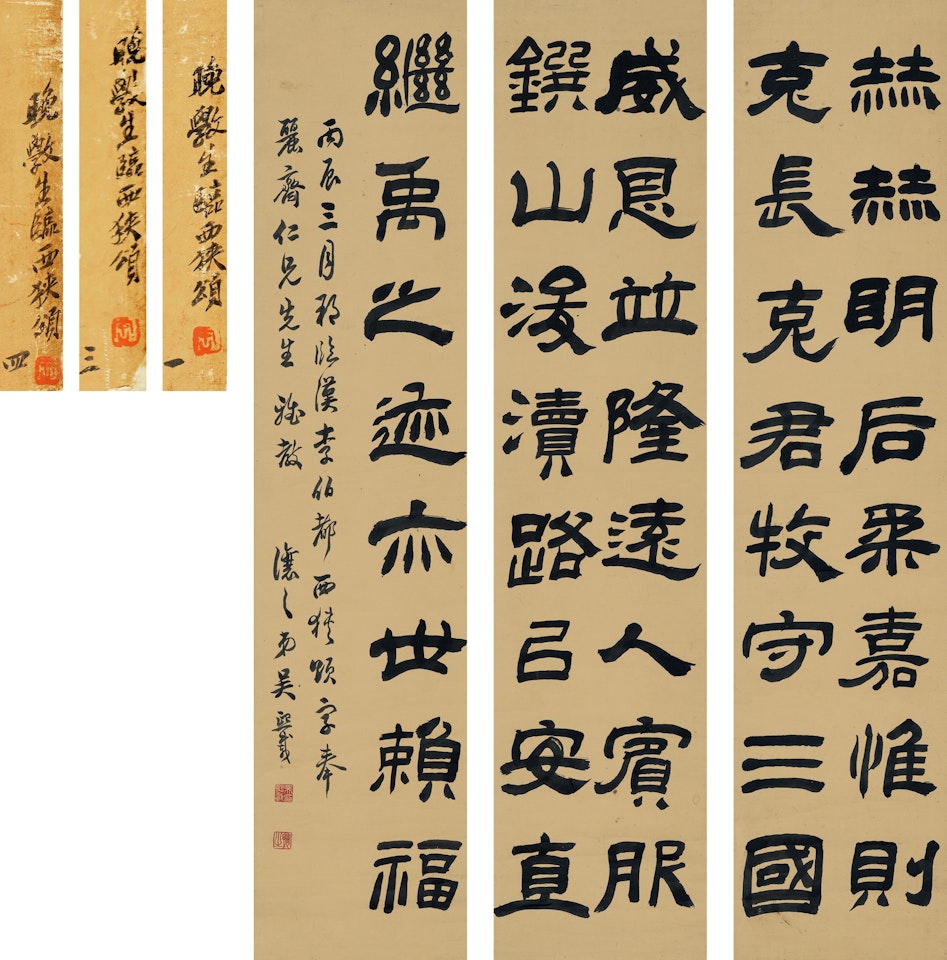 赫赫明后柔嘉惟則
克長克君牧守三國
威恩竝隆遠人賓服
鐉山浚瀆路㠯安直
繼禹之迹亦世賴福
丙辰三月朔臨漢李伯都西狹頌字奉
麗齋仁兄先生 雅教 讓之弟吳熙載
晚斅生臨西狹頌 一
晚斅生臨西狹頌 三
晚斅生臨西狹頌 四